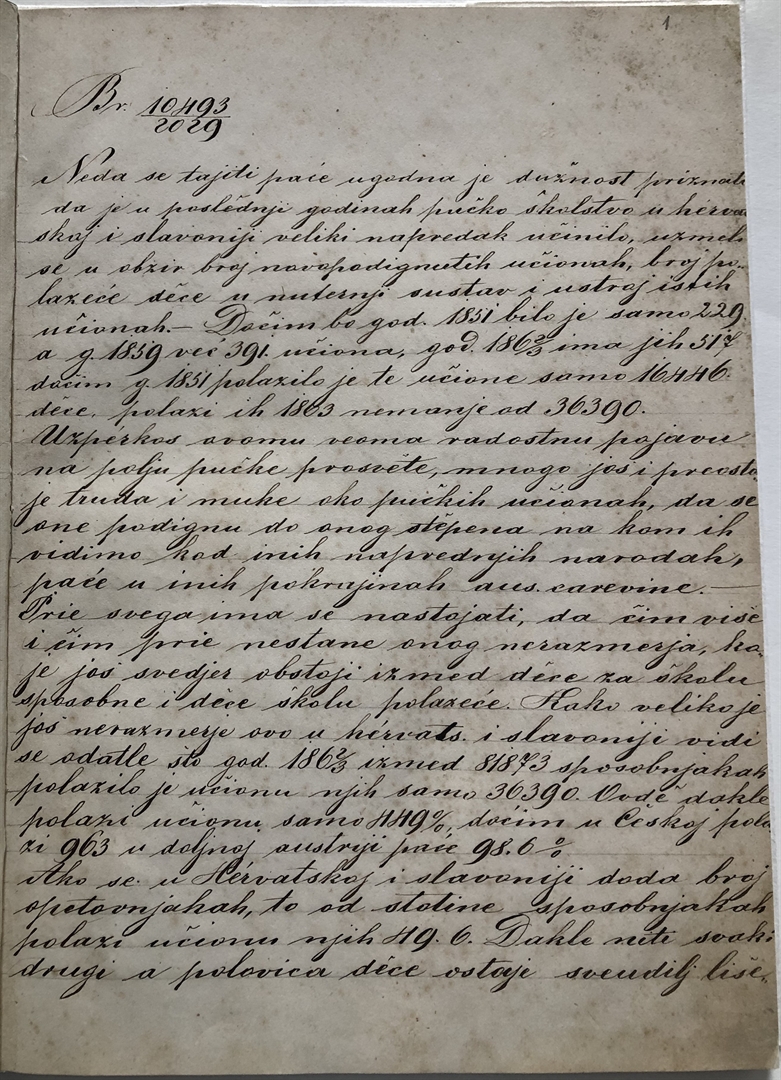 1
Br. 10493
2029
Neda se tajiti paće ugodna je dužnost priznati
da je u poslědnji godinah pučko školstvo u hérva
skoj i slavoniji veliki napredak učinilo, uzmeh
se u obzir broj novopodignutih učionah, broj po-
lazeće děce u nuternji sustav i ustroj istih
učionah.— Dočim bo god. 1851 bilo je samo 229.
a g. 1859 već 391. učiona, god. 1862/3 ima jih 517
dočim g. 1851 polazilo je te učione samo 16446.
děce, polazi ih 1863 nemanje od 36390.
Uzperkos ovomu veoma radostnu pojavu
na polju pučke prosvěte, mnogo još i preosta
je truda i muke oko pučkih učionah, da se
one podignu do onog stěpena na kom ih
vidimo kod inih naprednjih narodah,
paće u inih pokrajinah aus. carevine.—
Prie svega ima se nastojati, da čim više
i čim prie nestane onog nerazmerja, ko
je još svedjer obstoji izmed děce za školu
sposobne i děce školu polazeće. Kako veliko je
još nerazmerje ovo u hérvats. i slavoniji vidi
se odatle što god. 1862/3 izmed 81873 sposobnjakah
polazilo je učionu njih samo 36390. Ovdě dakle
polazi učionu samo 449%, dočim u Českoj pola
zi 963 u doljnoj austriji paće 98.6 %
Ako se u Hérvatskoj i slavoniji doda broj
opetovnjakah, to od stotine sposobnjakah
polazi učionu njih 49. 6. Dakle niti svaki
drugi a polovica děce ostaje sveudilj liše-